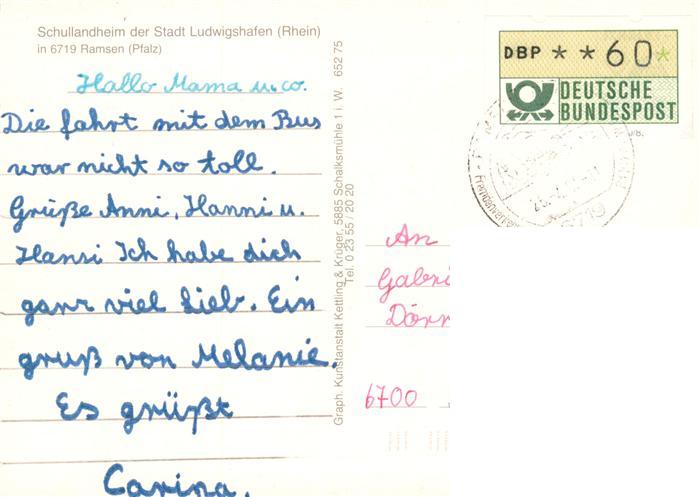 Schullandheim der Stadt Ludwigshafen (Rhein)
in 6719 Ramsen (Pfalz)
Hallo Mama u. co.
Die fahrt mit dem Bus
war nicht so toll.
Grüße Anni, Hanni u.
Hansi Ich habe dich
ganz viel lieb. Ein
gruß von Melanie.
Es grüßt
Carina.
Graph. Kunstanstalt Kettling & Krüger, 5885 Schalksmühle 1 i. W. 652 75
Tel. 0 23 55 / 20 20
DBP * * 60 *
DEUTSCHE
BUNDESPOST
6719
An
Gabri
Dörr
6700